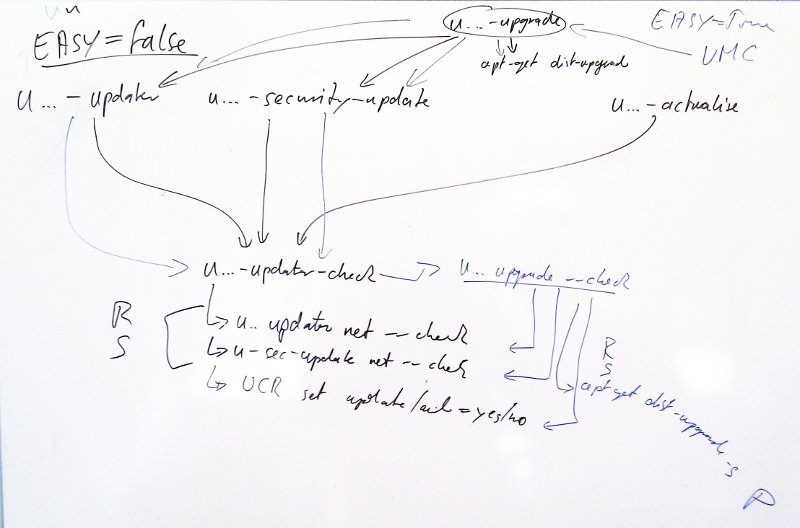 u
EASY=false
u...-upgrade
EASY=True
UMC
apt-get dist-upgrade
u...-updater
u...-security-update
u...-actualise
u...-updater-check
u... upgrade --check
R
S
u.. updater net --check
u-sec-update net --check
UCR set update/avail=yes/no
R
S
apt-get dist-upgrade -s
P